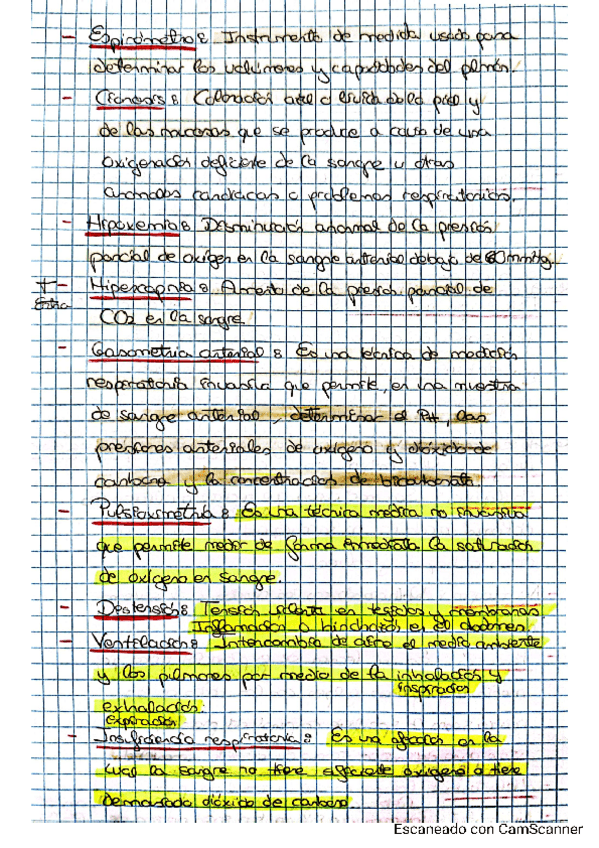 - Espirómetro: Instrumento de medida usado para
determinar los volúmenes y capacidades del pulmón.
- Cianosis: Coloración azul o lívida de la piel y
de las mucosas que se produce a causa de una
oxigenación deficiente de la sangre u otras
anomalías cardiacas o problemas respiratorios.
- Hipoxemia: Disminución anormal de la presión
parcial de oxigen en la sangre arterial debajo de 60mmHg.
- Hipercapnia: Aumento de la presión parcial de
CO2 en la sangre
- Gasometria arterial: Es una técnica de medición
respiratoria invasiva que permite, en una muestra
de sangre arterial, determinar el PH, las
presiones arteriales de oxigeno y dióxido de
carbono y la concentración de bicarbonato.
- Pulsioximetria: Es una técnica médica no invasiva
que permite medir de forma inmediata la saturación
de oxigeno en sangre.
- Distensión: Tensión en tejidos y membranas.
Inflamación o hinchazón en el abdomen.
- Ventilación: Intercambio de aire el medio ambiente
y los pulmones por medio de la inhalación y
inspiración
exhalación.
expiración
- Insuficiencia respiratoria: Es una afección en la
cual la sangre no tiene suficiente oxigeno o tiene
demasiado dióxido de carbono
Escaneado con CamScanner